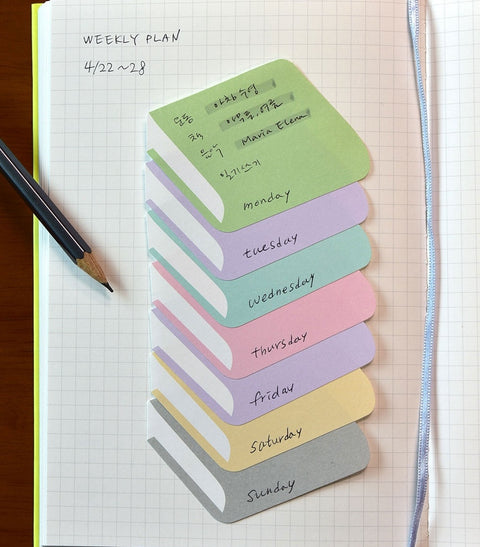 WEEKLY PLAN
4/22~28
운동 아침수영
책 아무튼, 여름
음악 Maria Elena
일기쓰기
monday
tuesday
wednesday
thursday
friday
saturday
sunday